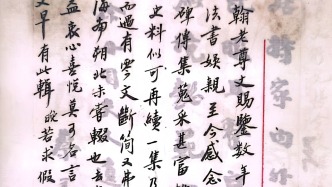 翰老尊丈賜鑒數年
法書娛親至今感念
碑傳集蒐采甚富
史料似可再續一集乃
而遇有零文斷簡又弗
海南朔北未嘗輟也
益衷心喜悅莫可名言
又早有此輯 晚若求假